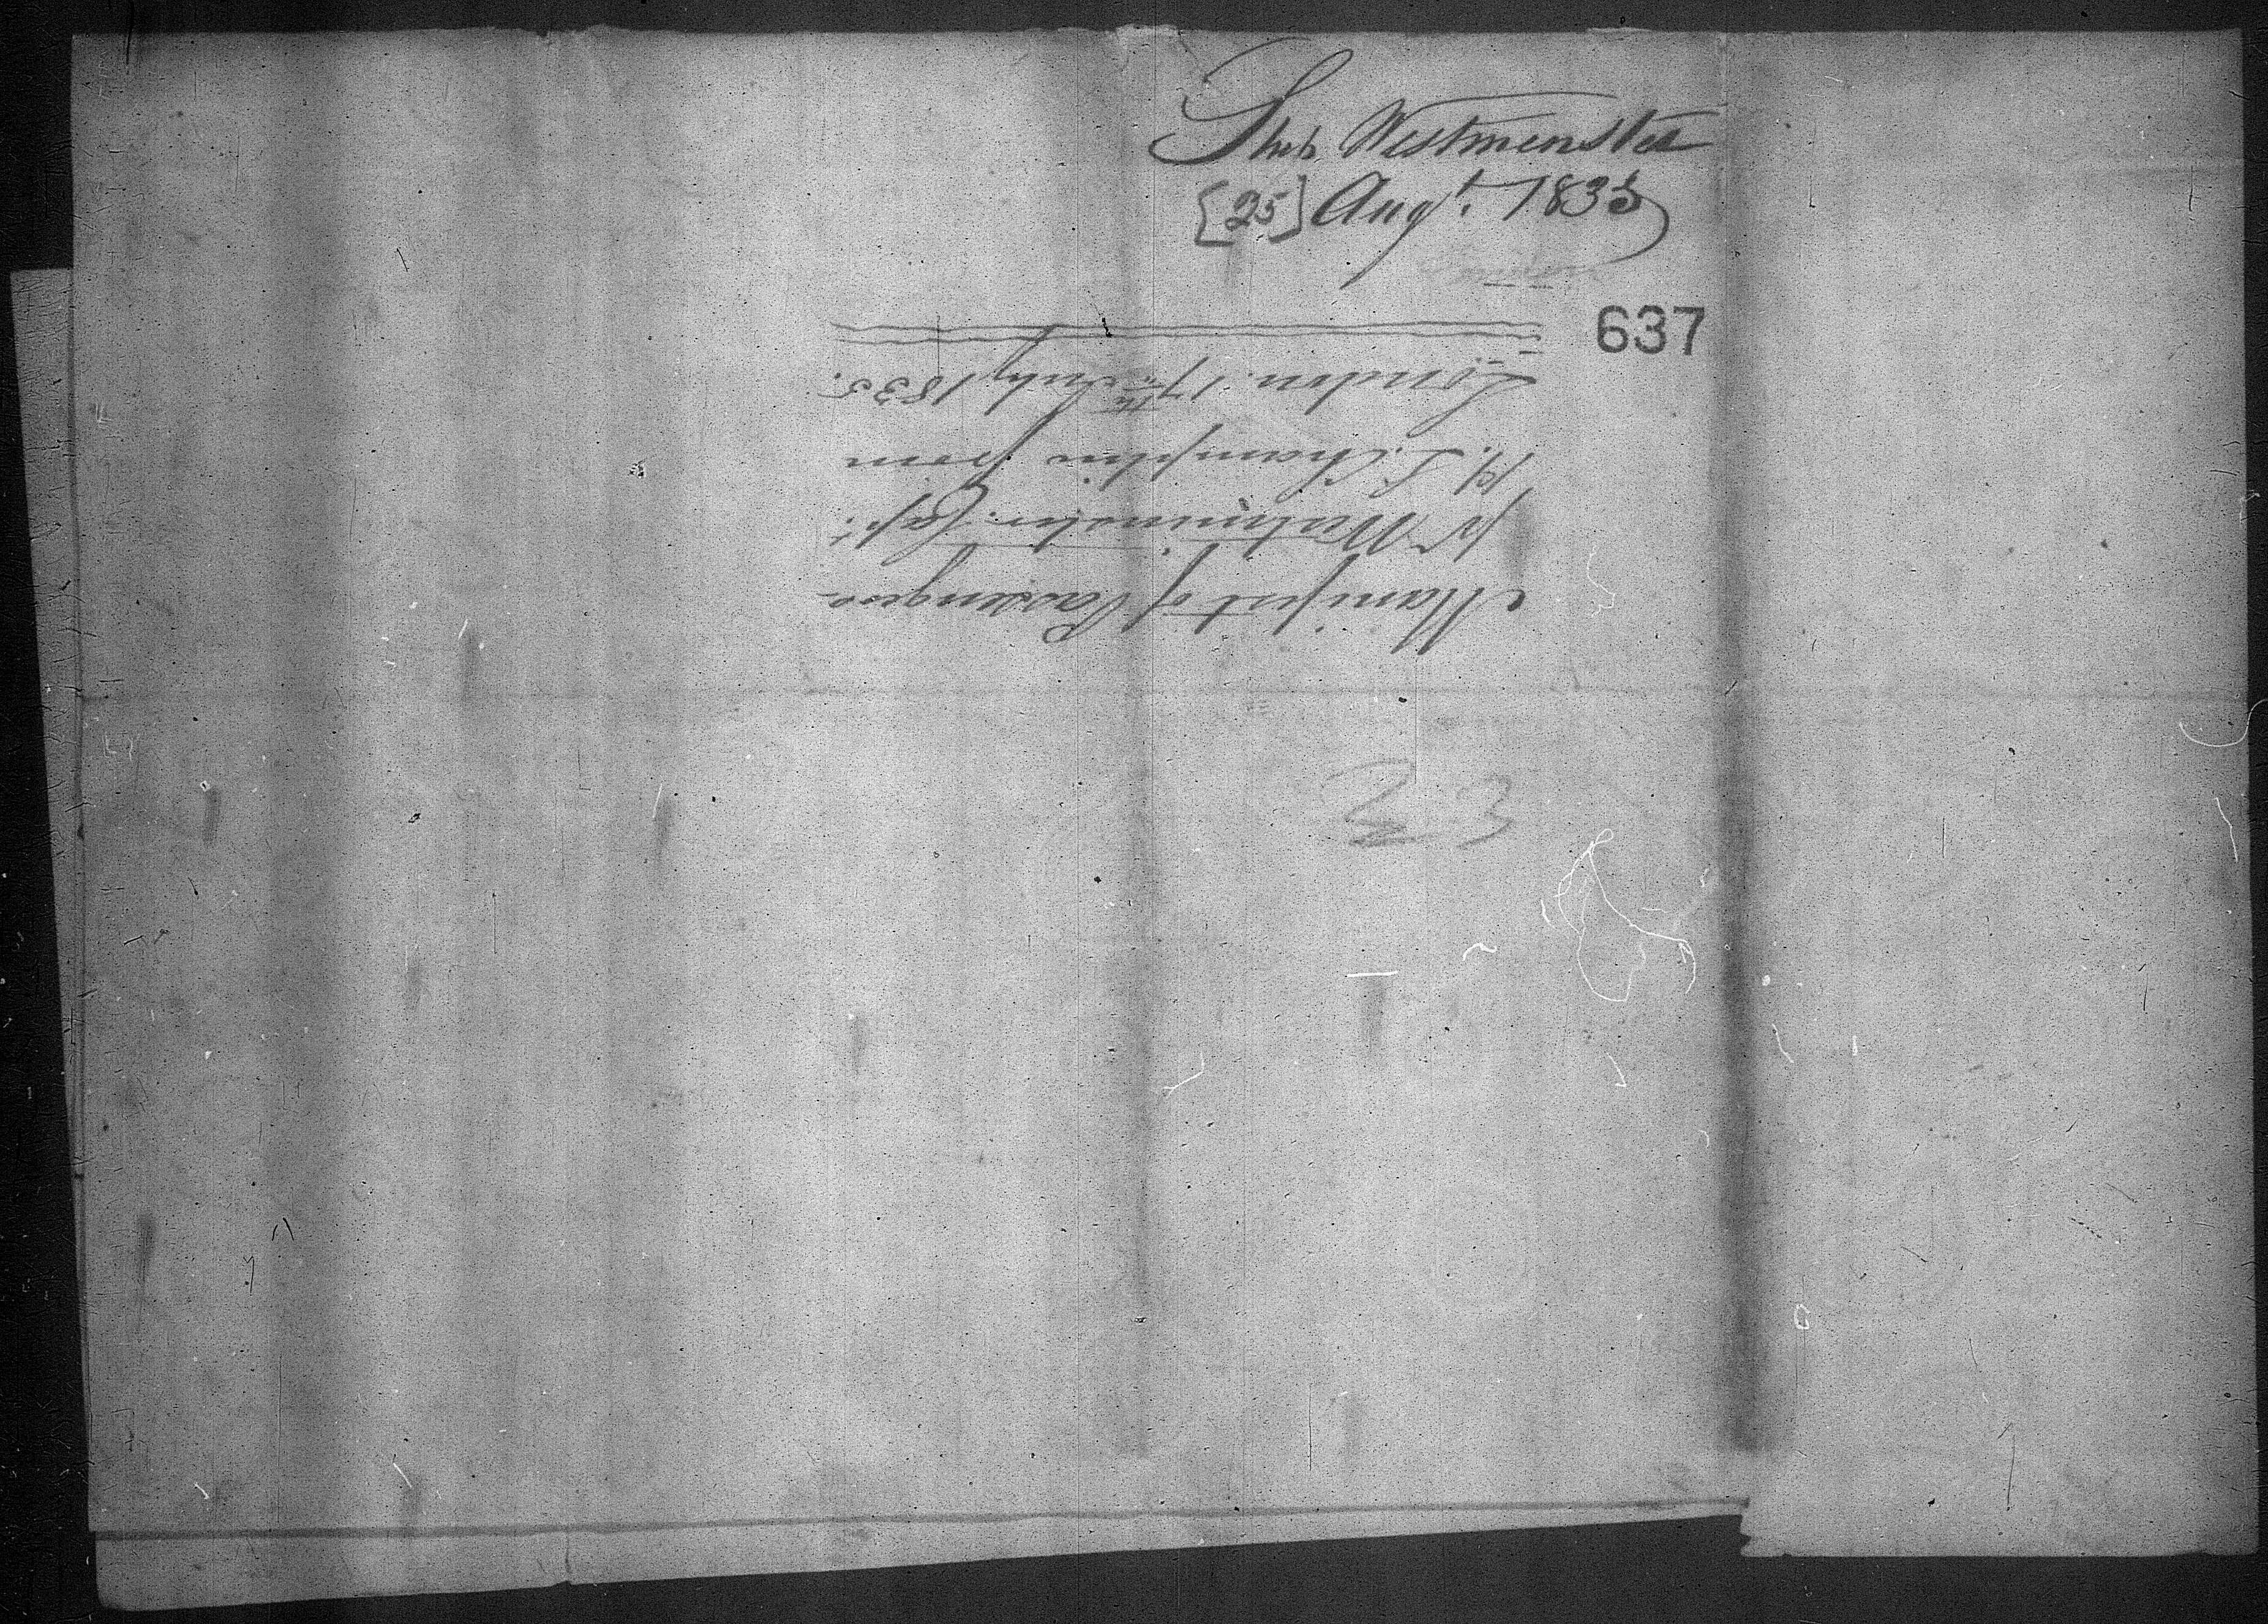 Ship Westminster
[25] Augt. 1835
637
Manifest of Passengers
pr Westminster. Capt.
London. 17th July 1835.
23